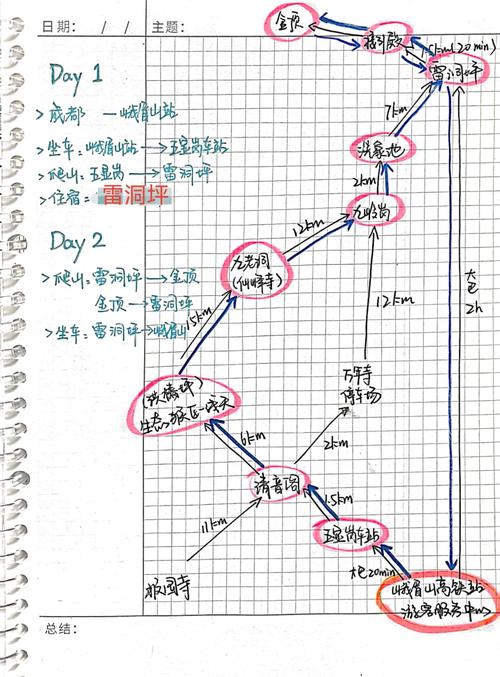 日期: / / 主题:
Day 1
> 成都 — 峨眉山站
> 坐车:峨眉山站→五显岗车站
> 爬山:五显岗→雷洞坪
> 住宿:雷洞坪
Day 2
> 爬山:雷洞坪→金顶
金顶→雷洞坪
> 坐车:雷洞坪→峨眉山
金顶
接引殿
1.5km(20min)
雷洞坪
7km
洗象池
2km
九岭岗
12km
九老洞
(仙峰寺)
大巴
2h
12km
15km
万年寺
停车场
(洪椿坪)
生态猴区一线天
6km
2km
清音阁
11km
1.5km
五显岗车站
报国寺
大巴20min
峨眉山高铁站
游客服务中心
总结: